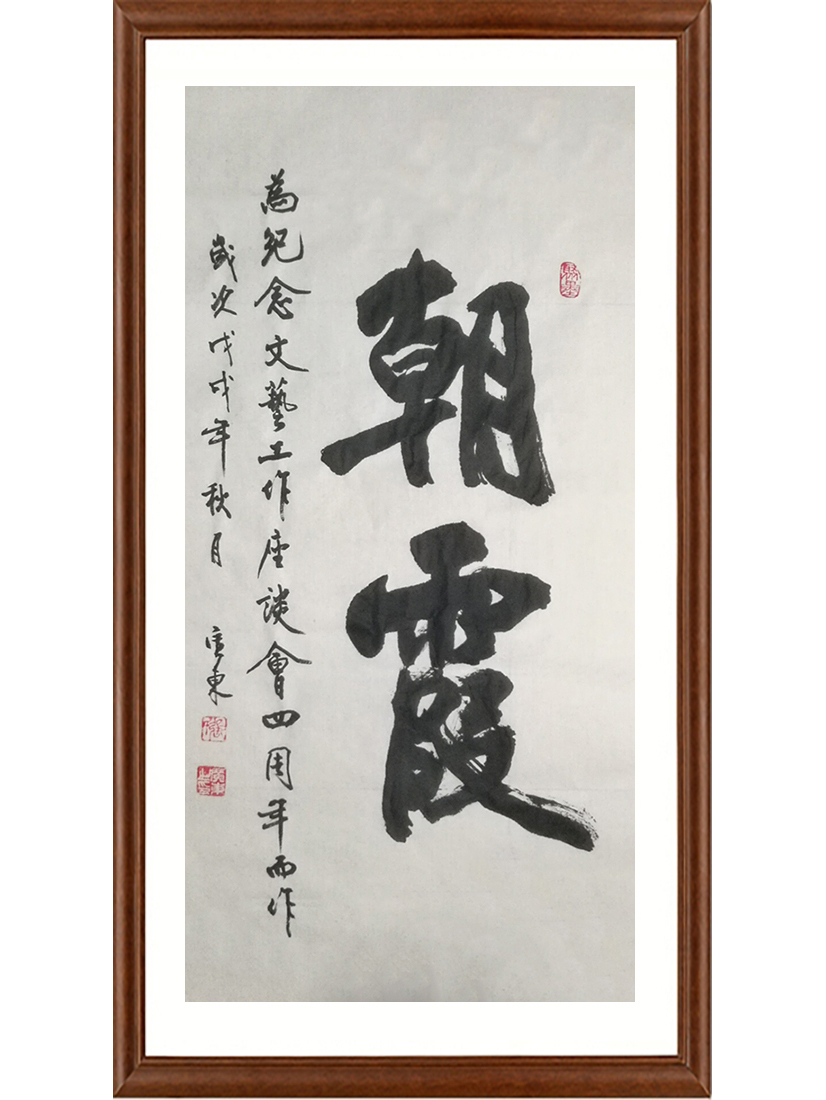 朝霞
為紀念文藝工作座談會四周年而作
歲次戊戌年秋月